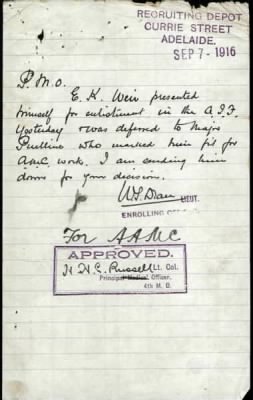 RECRUITING DEPOT
CURRIE STREET
ADELAIDE.
SEP 7 - 1916
P.M.O.
E. K. Weir presented
himself for enlistment in the A.I.F.
yesterday & was deferred to Major
who marked him fit for
AAMC work. I am sending him
down for your decision.
LIEUT.
ENROLLING
For AAMC
APPROVED.
H. H. E. Russell Lt. Col.
Principal Medical Officer.
4th M. D.